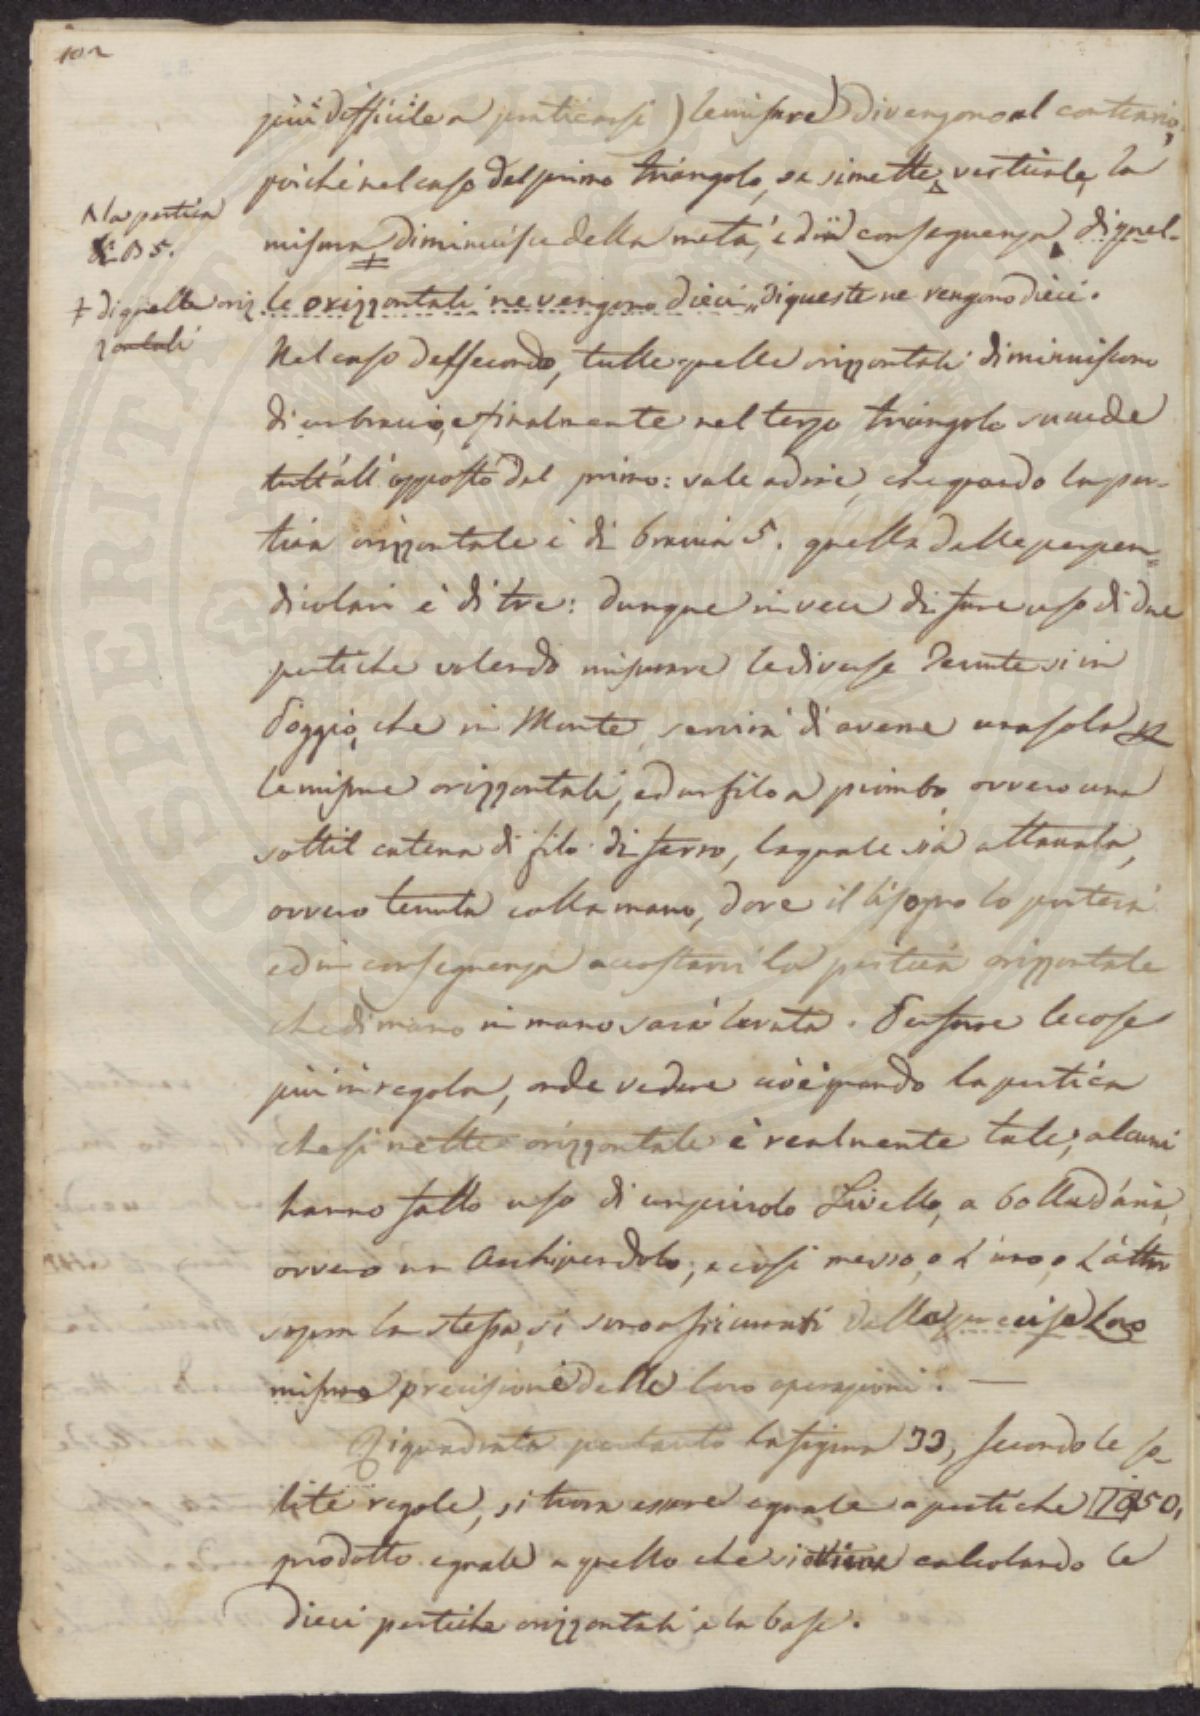 102
più difficile a praticarsi) le misure divengono al contrario,
poiché nel caso del primo triangolo, se si mette verticale, la
misura diminuisce della metà, e di conseguenza di quel-
le orizzontali ne vengono dieci, di queste ne vengono dieci.
Nel caso del secondo, tutte quelle orizzontali diminuiscono
di un braccio, e finalmente nel terzo triangolo succede
tutt'all'opposto del primo: vale a dire, che quando la per-
tica orizzontale è di braccia 5. quella delle perpen-
dicolari è di tre: dunque in vece di fare uso di due
pertiche volendo misurare le diverse vedute si in
Poggio, che in Monte, servirà di averne una sola
le misure orizzontali, ed un filo a piombo, ovvero una
sottil catena di filo di ferro, la quale sia attaccata,
ovvero tenuta colla mano, dove il bisogno lo porterà
ed in conseguenza accostarvi la pertica orizzontale
che di mano in mano sarà levata. Per fare le cose
più in regola, onde vedere cioè quando la pertica
che si mette orizzontale è realmente tale, alcuni
hanno fatto uso di un piccolo Livello, a bolla d'aria,
ovvero un Archipendolo; e così messo, o l'uno, o l'altro
sopra la stessa, si sono assicurati della precisa loro
misura precisione delle loro operazioni. —
Riquadrata pertanto la figura 33, secondo le so-
lite regole, si trova essere eguale a pertiche 1050,
prodotto eguale a quello che si ottiene calcolando le
dieci pertiche orizzontali e la base.
^ la pertica
di B 5.
‡ di quelle oriz
zontali